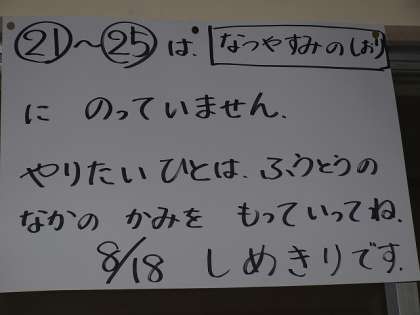 ㉑〜㉕は、なつやすみのしおり
に のっていません.
やりたい ひとは、ふうとうの
なかの かみを もっていってね.
8/18 しめきりです.